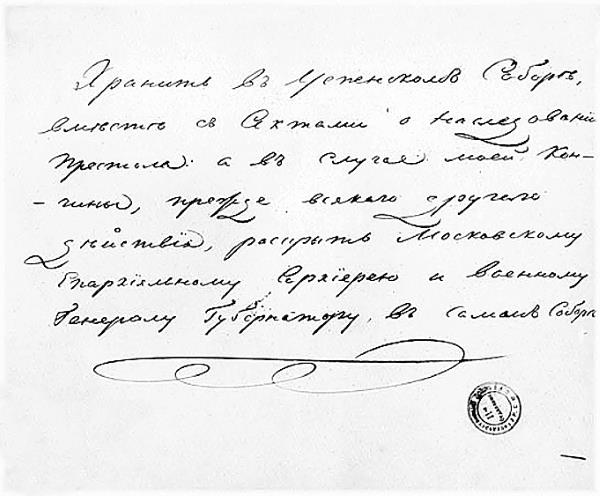 Хранить въ Успенскомъ Соборѣ,
вмѣстѣ съ Актами о наслѣдованіи
Престола: а въ случаѣ моей кон-
-чины, прежде всякаго другаго
дѣйствія, раскрыть Московскому
Епархіяльному Архіерею и военному
Генералу Губернатору, въ самомъ Соборѣ